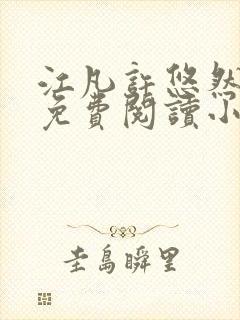 江凡許悠然
免費閱讀小
圭島瞬里